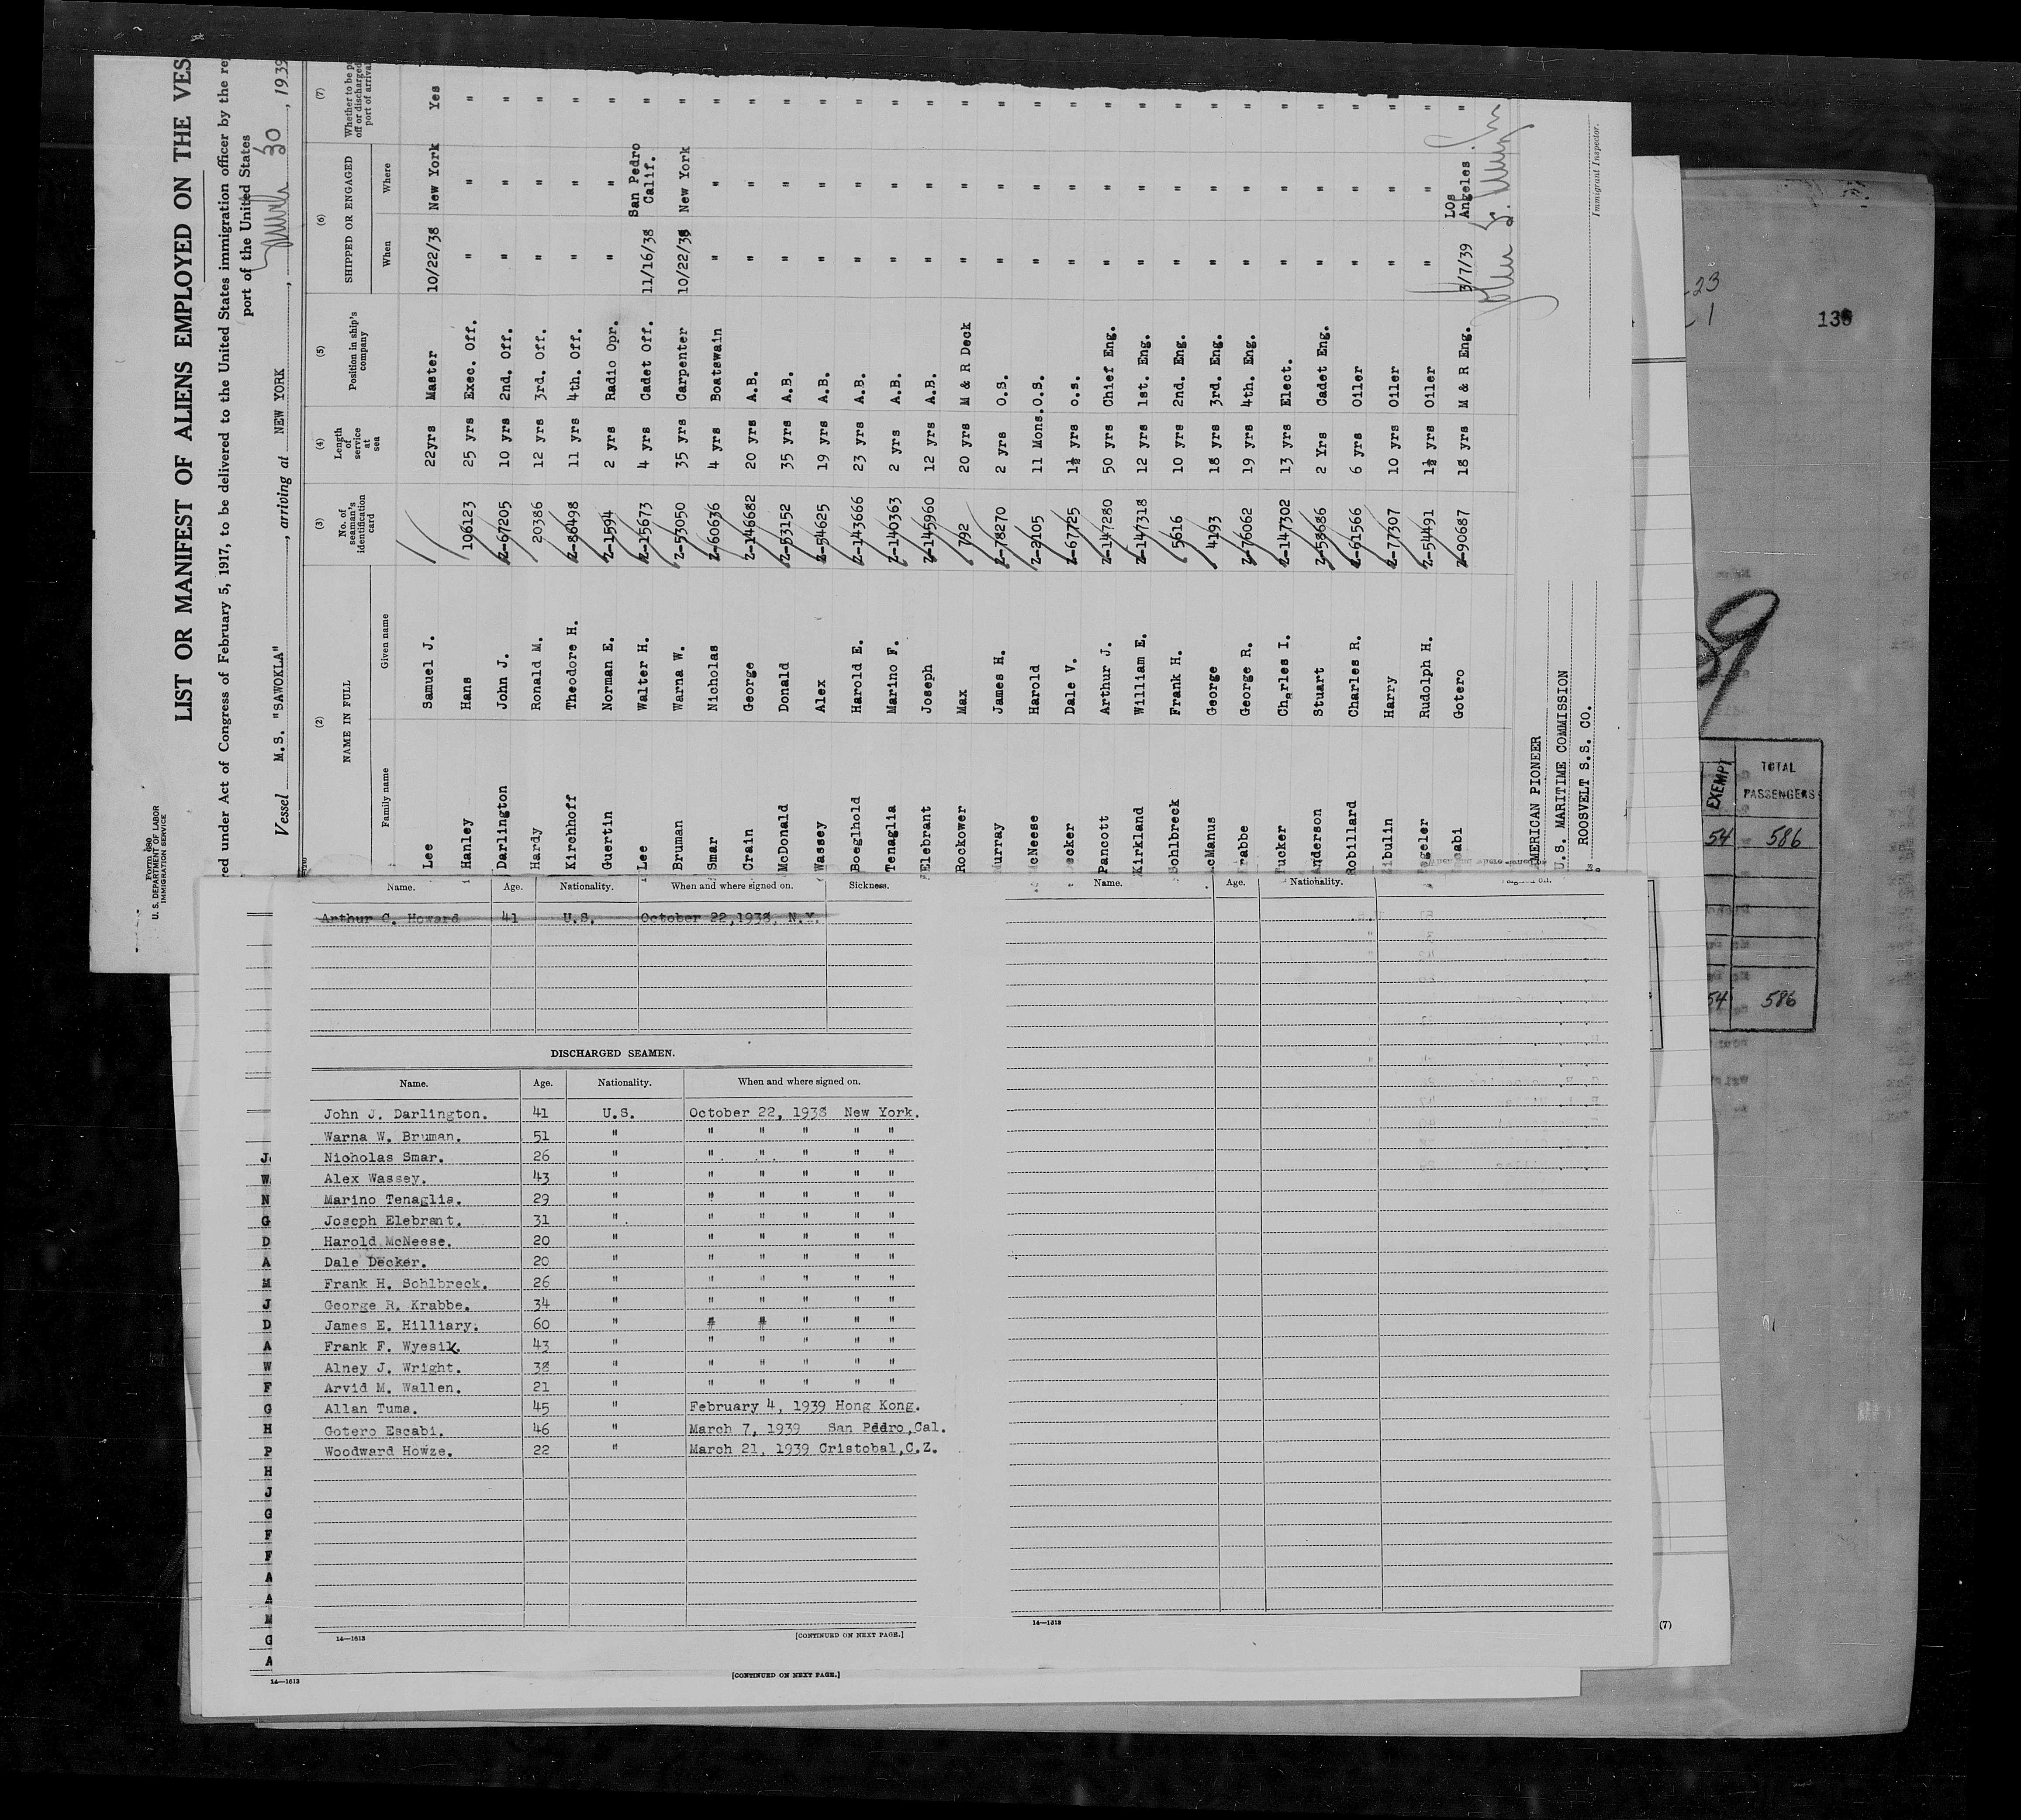 Form 680
U. S. DEPARTMENT OF LABOR
IMMIGRATION SERVICE
LIST OR MANIFEST OF ALIENS EMPLOYED ON THE VES
red under Act of Congress of February 5, 1917, to be delivered to the United States immigration officer by the re
port of the United States
Vessel M.S. "SAWOKLA", arriving at NEW YORK, 30, 1939
(2) (3) (4) (5) (6) (7)
NAME IN FULL
No. of seaman's identification card
Length of service at sea
Position in ship's company
SHIPPED OR ENGAGED
Whether to be p
off or discharged
port of arrival
Family name Given name When Where
Lee Samuel J. 22yrs Master 10/22/38 New York Yes
Hanley Hans 106123 25 yrs Exec. Off. " " "
Darlington John J. Z-67205 10 yrs 2nd. Off. " " "
Hardy Ronald M. 20386 12 yrs 3rd. Off. " " "
Kirchhoff Theodore H. Z-86498 11 yrs 4th. Off. " " "
Guertin Norman E. Z-1594 2 yrs Radio Opr. " " "
Lee Walter H. Z-15673 4 yrs Cadet Off. 11/16/38 San Pedro Calif. "
Bruman Warna W. Z-53050 35 yrs Carpenter 10/22/38 New York "
Smar Nicholas Z-60636 4 yrs Boatswain " " "
Crain George Z-146682 20 yrs A.B. " " "
McDonald Donald Z-53152 35 yrs A.B. " " "
Wassey Alex Z-54625 19 yrs A.B. " " "
Boeglhold Harold E. Z-143666 23 yrs A.B. " " "
Tenaglia Marino F. Z-140363 2 yrs A.B. " " "
Elebrant Joseph Z-145960 12 yrs A.B. " " "
Rockower Max 792 20 yrs M & R Deck " " "
urray James H. Z-78270 2 yrs O.S. " " "
cNeese Harold Z-2105 11 Mons. O.S. " " "
ecker Dale V. Z-67725 1½ yrs O.S. " " "
Pancott Arthur J. Z-147280 50 yrs Chief Eng. " " "
Kirkland William E. Z-147318 12 yrs 1st. Eng. " " "
Sohlbreck Frank H. 5616 10 yrs 2nd. Eng. " " "
cManus George 4193 18 yrs 3rd. Eng. " " "
rabbe George R. Z-76062 19 yrs 4th. Eng. " " "
Tucker Charles I. Z-147302 13 yrs Elect. " " "
Anderson Stuart Z-58686 2 Yrs Cadet Eng. " " "
Robillard Charles R. Z-61566 6 yrs Oiler " " "
ibulin Harry Z-77307 10 yrs Oiler " " "
egeler Rudolph H. Z-54491 1½ yrs Oiler " " "
cabi Gotero Z-90687 18 yrs M & R Eng. 3/7/39 Los Angeles "
MERICAN PIONEER
U.S. MARITIME COMMISSION
ROOSVELT S.S. CO.
Immigrant Inspector.
Name. Age. Nationality. When and where signed on. Sickness.
Arthur C. Howard 41 U.S. October 22,1938, N.Y.
DISCHARGED SEAMEN.
Name. Age. Nationality. When and where signed on.
John J. Darlington. 41 U.S. October 22, 1938 New York.
Warna W. Bruman. 51 " " " " " "
Nicholas Smar. 26 " " " " " "
Alex Wassey. 43 " " " " " "
Marino Tenaglia. 29 " " " " " "
Joseph Elebrant. 31 " " " " " "
Harold McNeese. 20 " " " " " "
Dale Decker. 20 " " " " " "
Frank H. Sohlbreck. 26 " " " " " "
George R. Krabbe. 34 " " " " " "
James E. Hilliary. 60 " # # " " "
Frank F. Wyesik. 43 " " " " " "
Alney J. Wright. 38 " " " " " "
Arvid M. Wallen. 21 " " " " " "
Allan Tuma. 45 " February 4, 1939 Hong Kong.
Gotero Escabi. 46 " March 7, 1939 San Pedro,Cal.
Woodward Howze. 22 " March 21, 1939 Cristobal,C.Z.
14—1613 [CONTINUED ON NEXT PAGE.]
14—1613 [CONTINUED ON NEXT PAGE.]
J
W
N
G
D
A
M
J
D
A
W
F
G
H
P
H
J
G
F
F
A
A
M
G
A
Name. Age. Nationality.
14—1313
(7)
-23
1
138
EXEMPT TOTAL PASSENGERS
54 586
54 586